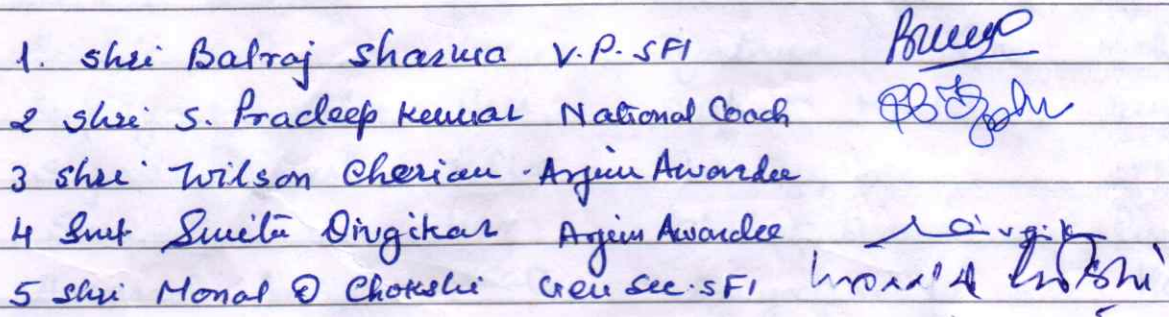 1. Shri Balraj Sharma V.P. SFI
2 Shri S. Pradeep Kumar National Coach
3 Shri Wilson Cherian - Arjun Awardee
4 Smt Smita Divgikar Arjun Awardee
5 Shri Monal D Chokshi Gen Sec. SFI